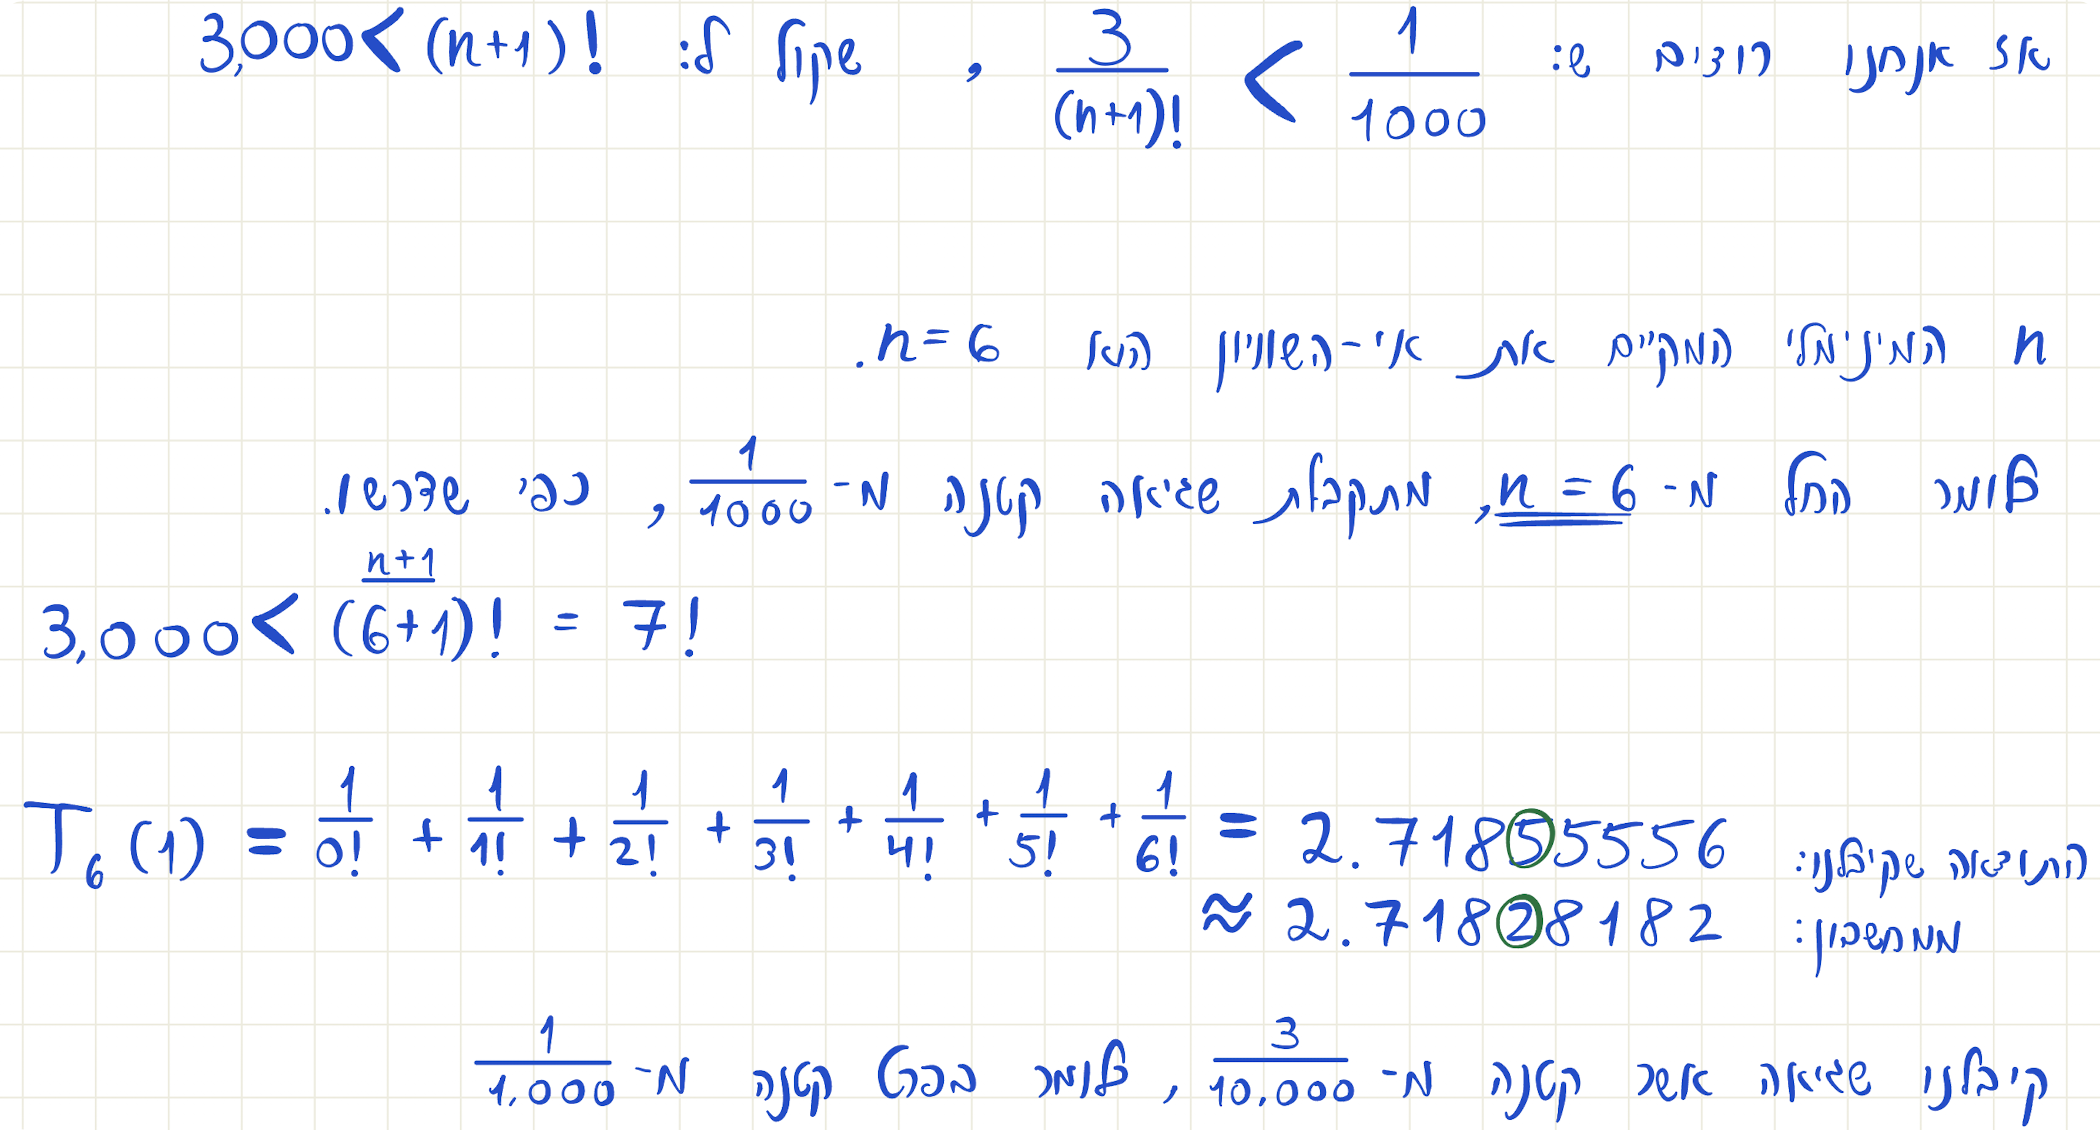 אז אנחנו רוצים ש: 3/(n+1)! < 1/1000 , שקול ל: 3,000 < (n+1)!
n המינימלי המקיים את אי-השוויון הוא n = 6.
כלומר החל מ- n = 6, מתקבלת שגיאה קטנה מ- 1/1000 , כפי שדרשו.
n+1
3,000 < (6+1)! = 7!
T₆(1) = 1/0! + 1/1! + 1/2! + 1/3! + 1/4! + 1/5! + 1/6! = 2.718555556 התוצאה שקיבלנו:
≈ 2.71828182 ממחשבון:
קיבלנו שגיאה אשר קטנה מ- 3/10,000 , כלומר בפרט קטנה מ- 1/1,000